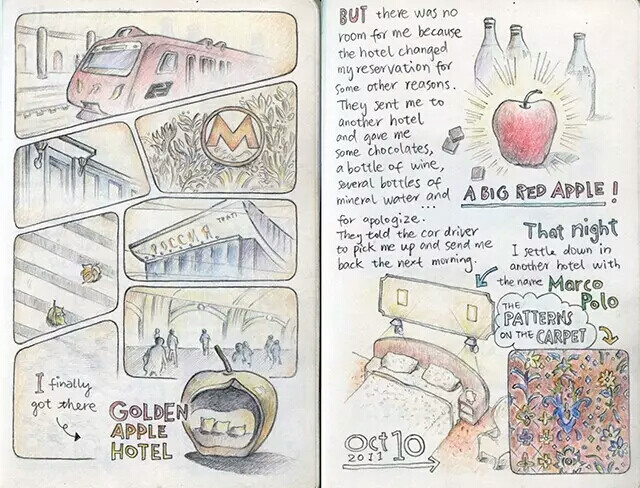 M
РОССИЯ
I finally
got there
GOLDEN
APPLE
HOTEL
BUT there was no
room for me because
the hotel changed
my reservation for
some other reasons.
They sent me to
another hotel
and gave me
some chocolates,
a bottle of wine,
several bottles of
mineral water and
...
for apologize.
They told the car driver
to pick me up and send me
back the next morning.
A BIG RED APPLE!
That night
I settle down in
another hotel with
the name Marco
Polo
THE
PATTERNS
ON THE CARPET
Oct 10
2011